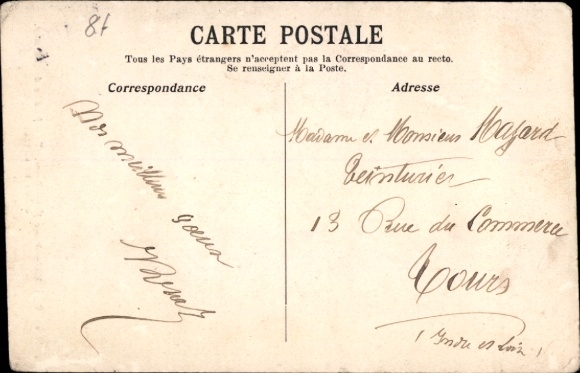 81
CARTE POSTALE
Tous les Pays étrangers n'acceptent pas la Correspondance au recto.
Se renseigner à la Poste.
Correspondance
Nos meilleurs
vœux
Adresse
Madame et Monsieur Mazard
Teinturier
13 Rue du Commerce
Tours
(Indre et Loire)